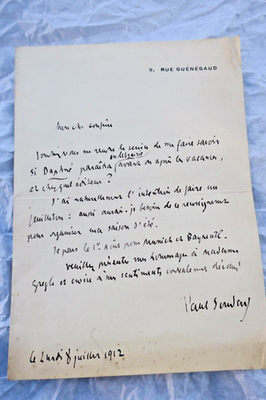 9, RUE GUÉNÉGAUD
Mon cher confrère
Voudriez-vous me rendre le service de me faire savoir
en librairie
si Daphné paraîtra avant ou après les vacances,
et chez quel éditeur ?
J'ai naturellement l'intention de faire un
feuilleton : aussi aurais-je besoin de ce renseignement
pour organiser ma saison d'été.
Je pars le 1er août pour Munich et Bayreuth.
Veuillez présenter mes hommages à madame
Gregh et croire à mes sentiments cordialement dévoués
Paul Souday
le lundi 8 juillet 1912